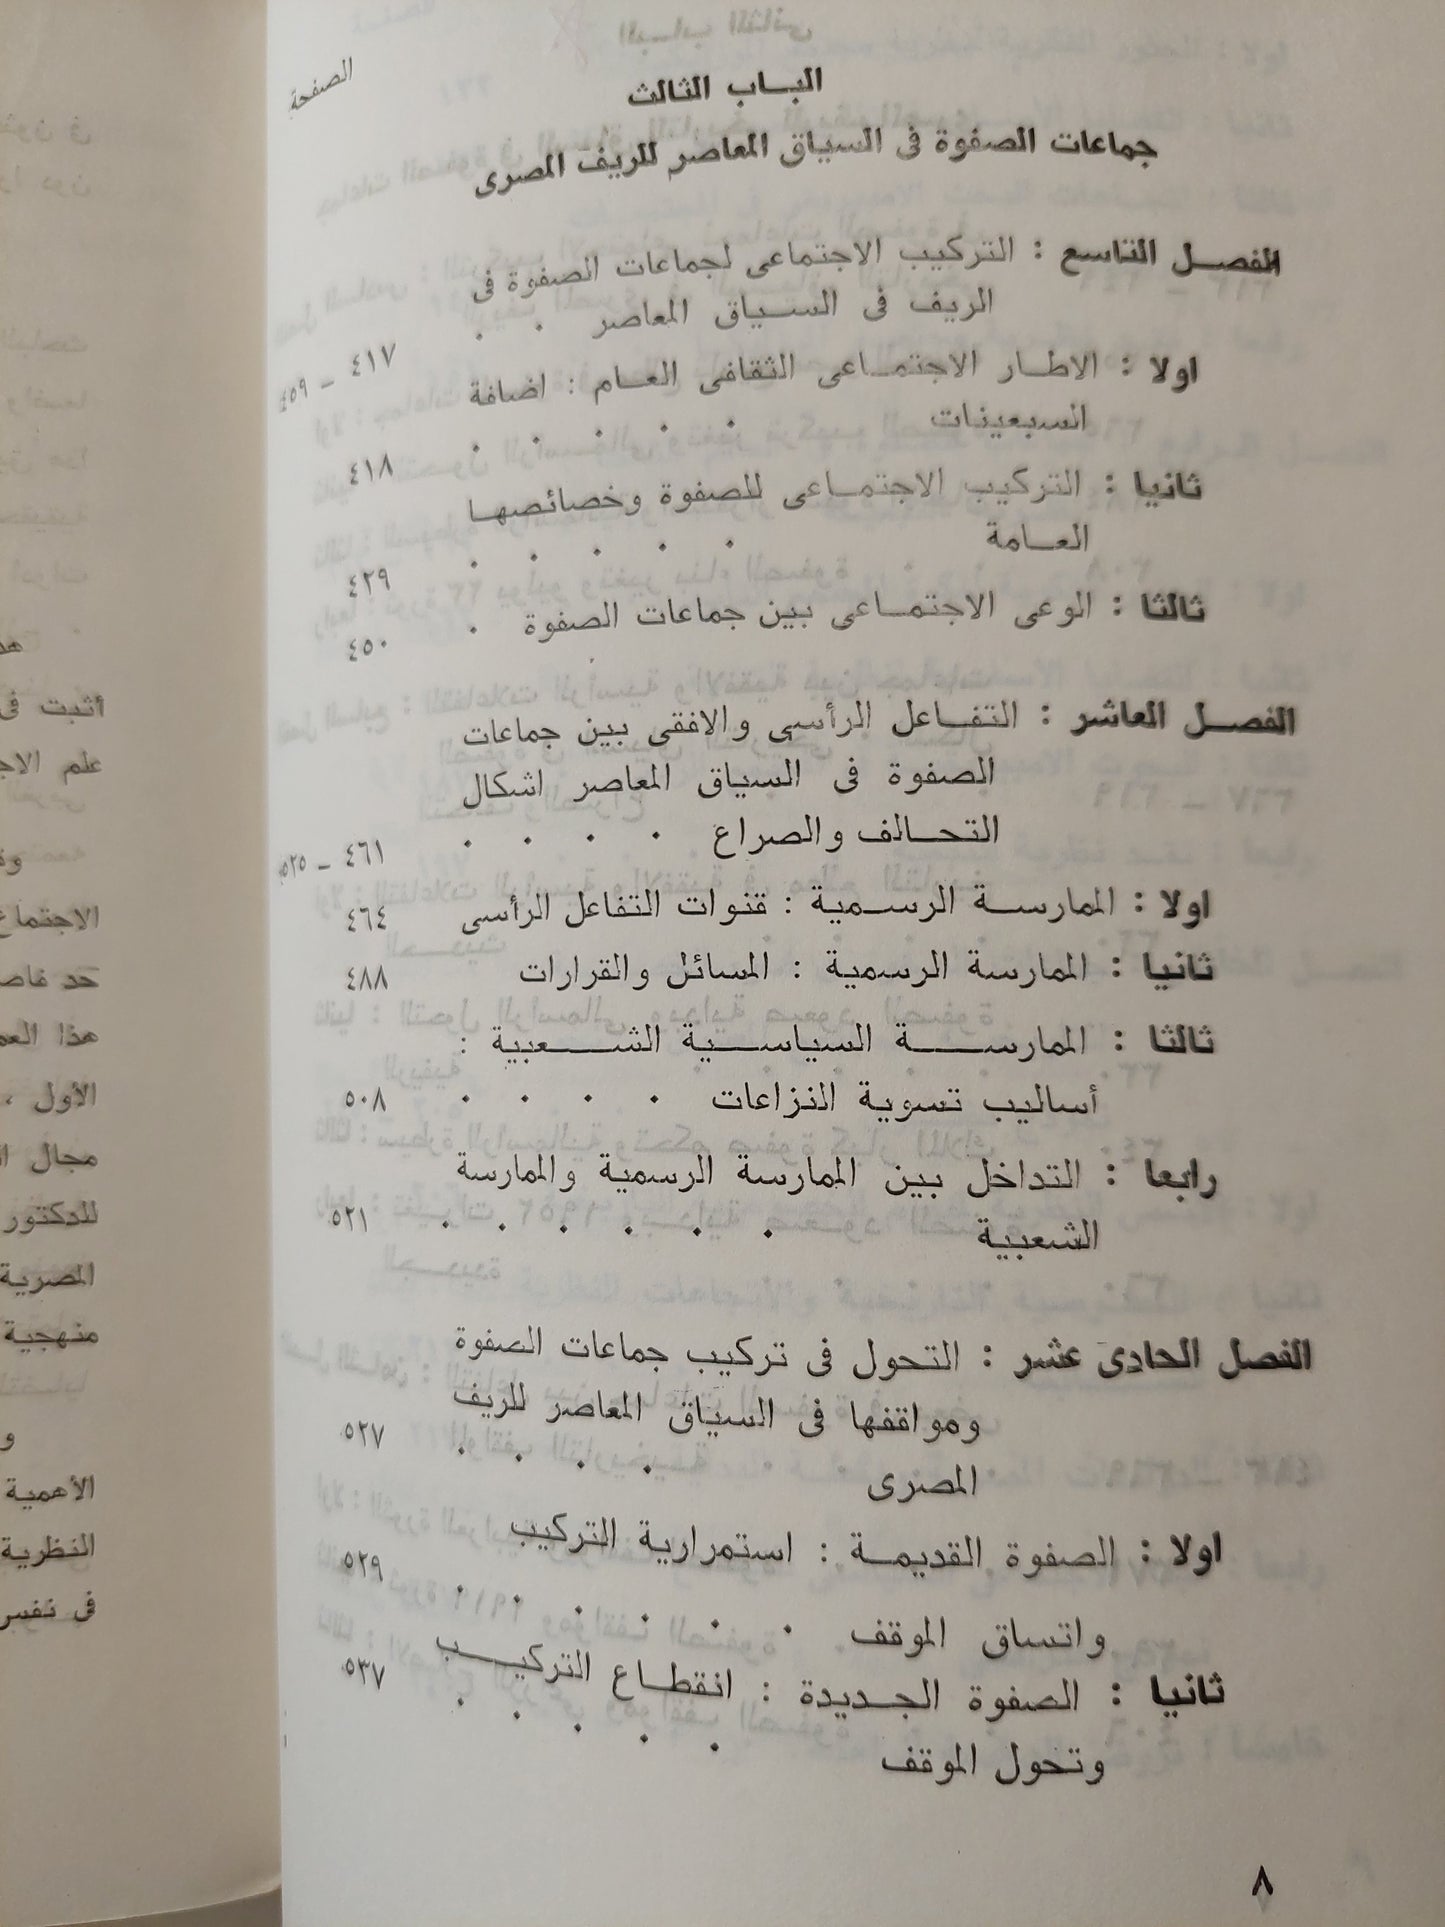 الصفحة
البـاب الثالث
جماعات الصفوة فى السياق المعاصر للريف المصرى
الفصـل التاسع : التركيب الاجتماعى لجماعات الصفوة فى
الريف فى السـياق المعاصر . . ٤١٧ - ٤٥٩
اولا : الاطـار الاجتمـاعى الثقافى العـام : اضافة
السبعينات . . . . . ٤١٨
ثانيا : التركيب الاجتمـاعى للصفوة وخصائصهـا
العـامة . . . . . ٤٢٩
ثالثا : الوعى الاجتمـاعى بين جماعات الصفوة . ٤٥٠
الفصـل العاشر : التفـاعل الرأسى والافقى بين جماعات
الصفوة فى السياق المعاصر اشكال
التحـالف والصراع . . . . ٤٦١ - ٥٢٥
اولا : الممارسـة الرسـمية : قنوات التفاعل الرأسى ٤٦٤
ثانيا : الممارسة الرسمية : المسائل والقرارات ٤٨٨
ثالثا : الممارســة السياسـية الشـعبية :
أساليب تسوية النزاعات . . . . ٥٠٨
رابعا : التداخل بين الممارسة الرسمية والممارسة
الشعبية . . . . . . ٥٢١
الفصل الحادى عشر : التحول فى تركيب جماعات الصفوة
ومواقفها فى السياق المعاصر للريف
المصرى . . . . ٥٢٧
اولا : الصفوة القديمـة : استمرارية التركيب
واتساق الموقف . . . . . . ٥٢٩
ثانيا : الصفوة الجـديدة : انقطـاع التركيـب
وتحول الموقف . . . . . ٥٣٧
٨
اثبت فى
علم
الاجتماع
هذا
الأول ،
مجال
للدكتور
المصرية
منهجية
و
الأهمية
النظرية
فى